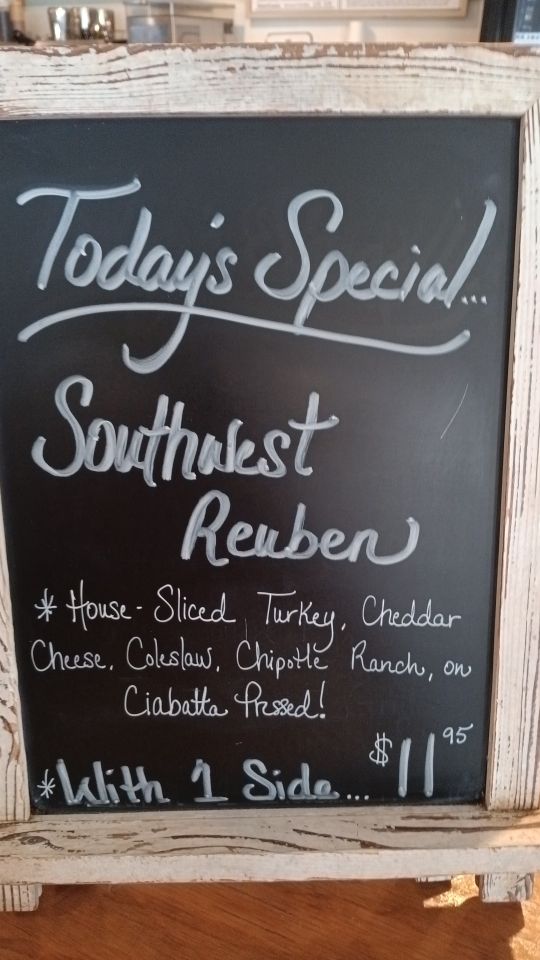 Today's Special...
Southwest
Reuben
* House-Sliced Turkey, Cheddar
Cheese, Coleslaw, Chipotle Ranch, on
Ciabatta Pressed!
*With 1 Side... $11 95